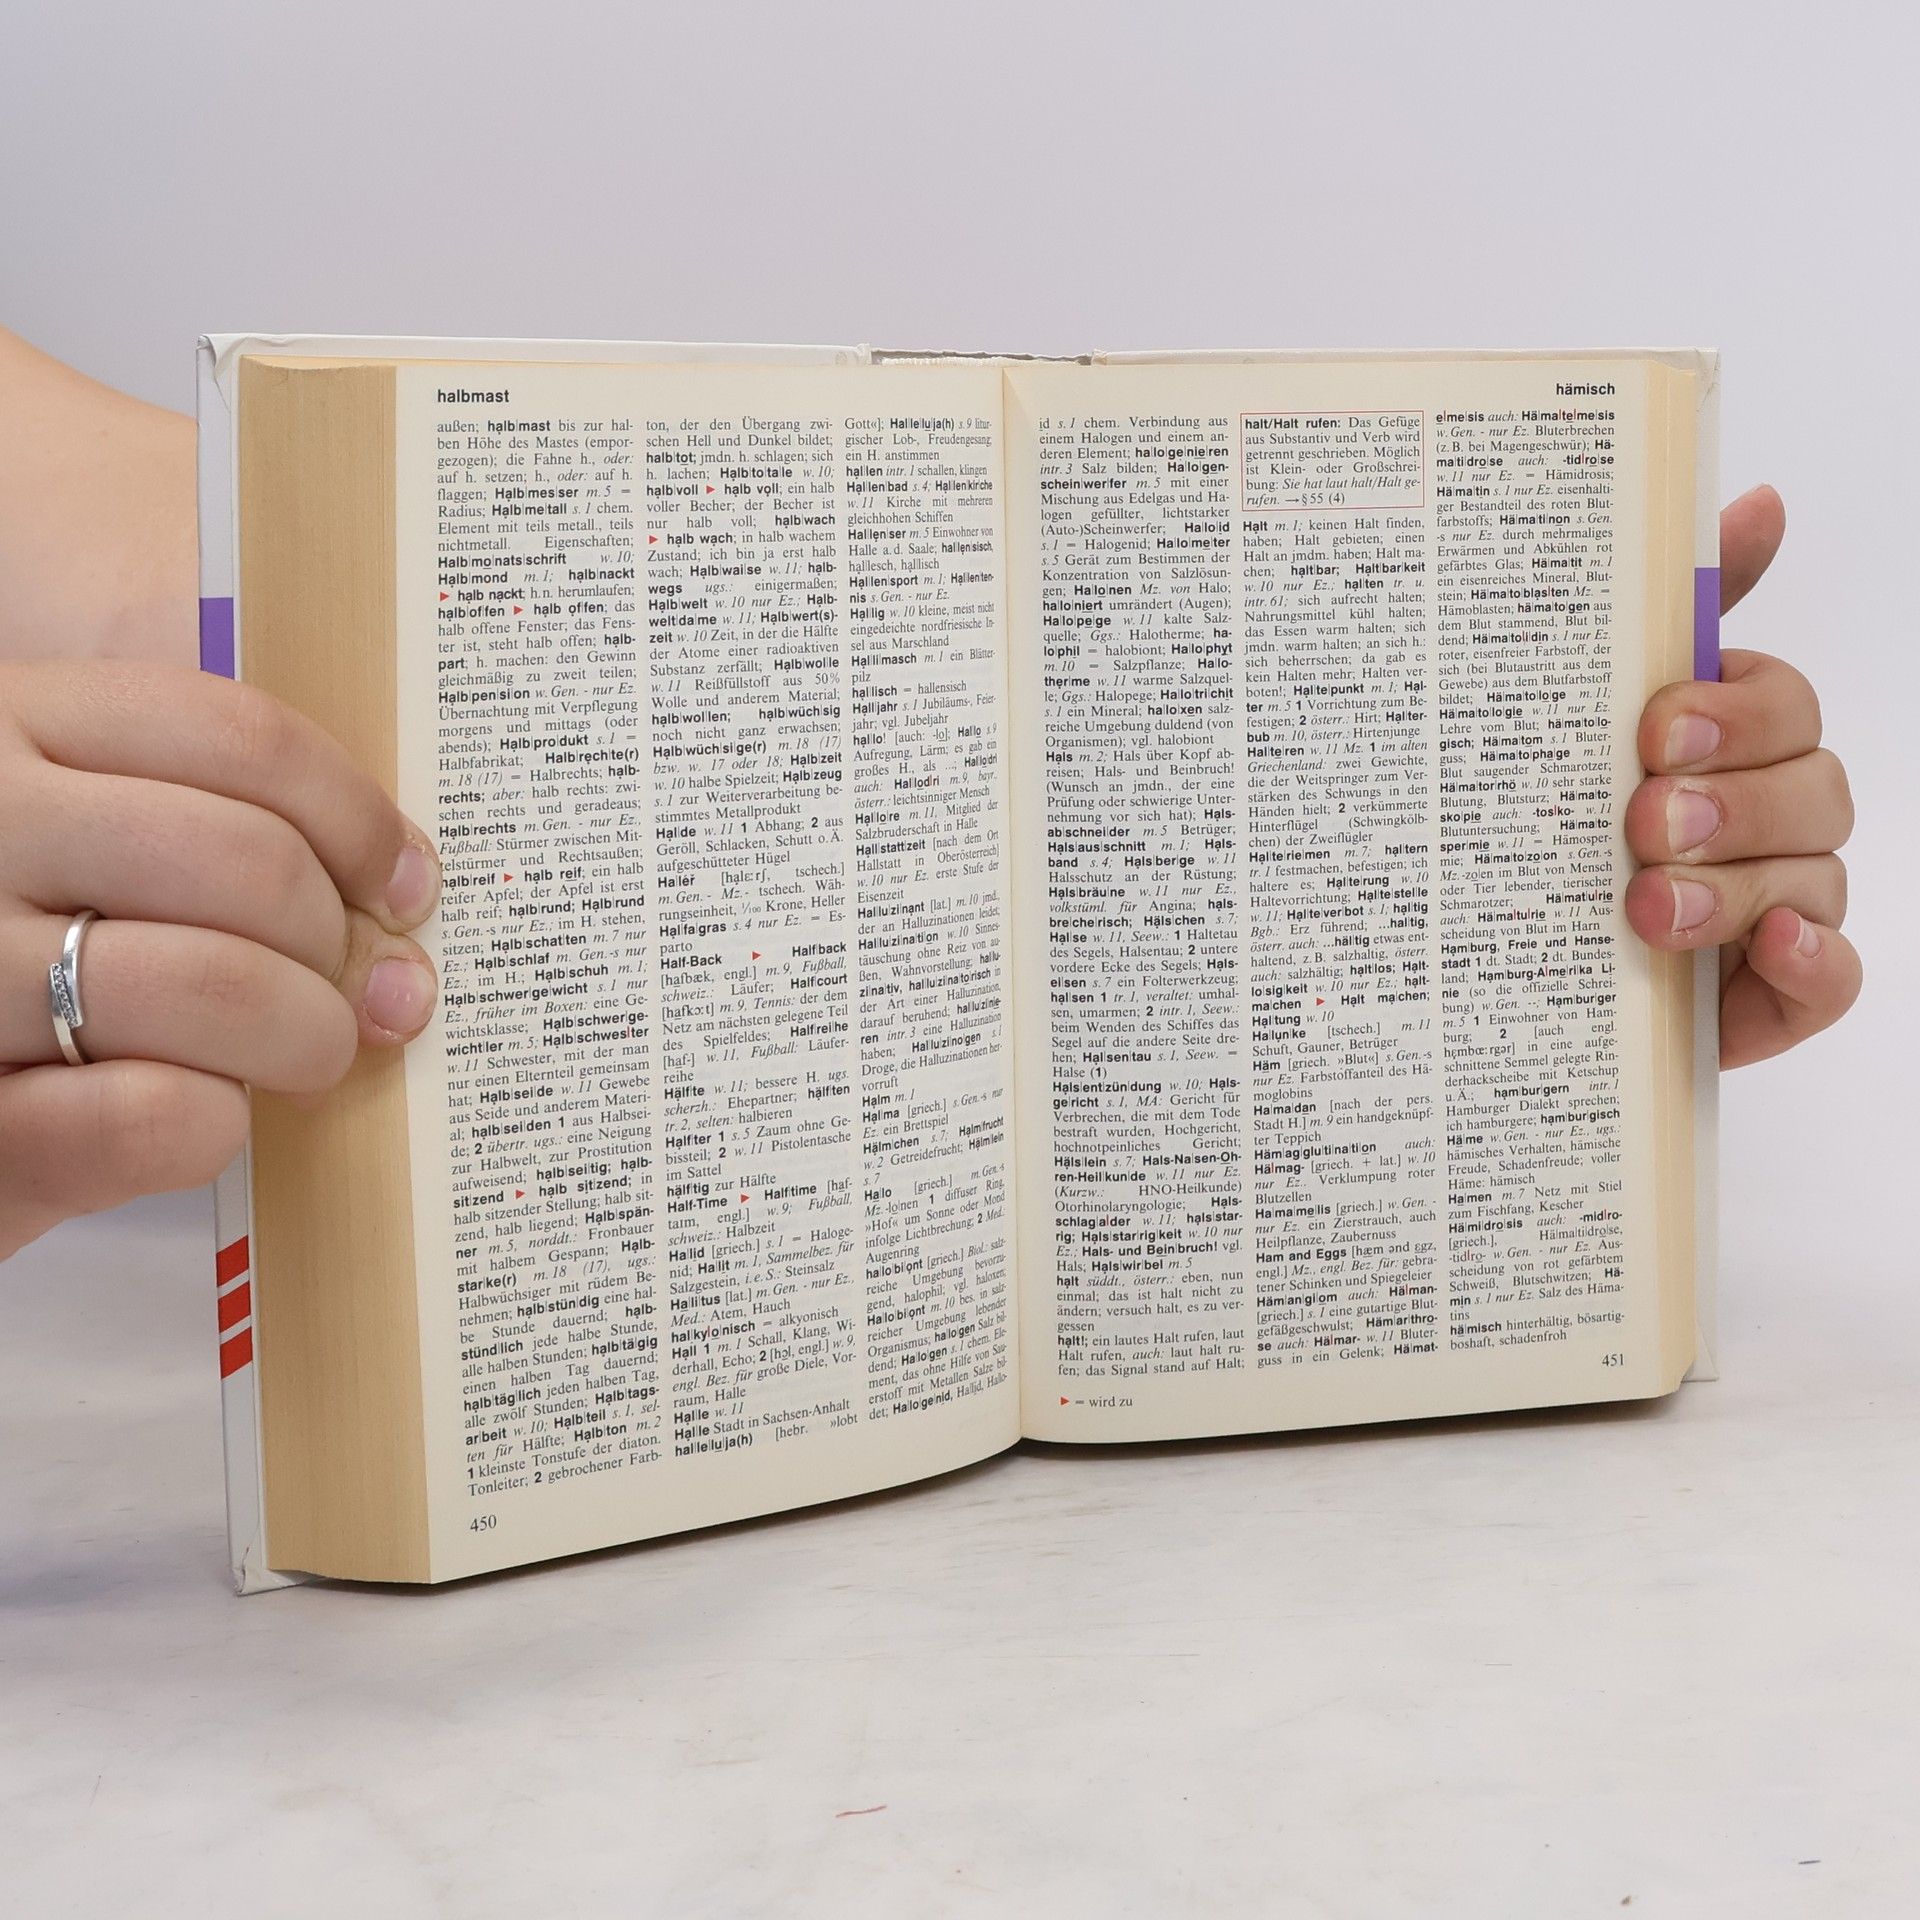 halbmast
außen; halb|mast bis zur hal-
ben Höhe des Mastes (empor-
gezogen); die Fahne h., oder:
auf h. setzen; h., oder: auf h.
flaggen; Halb|mes|ser m. 5 =
Radius; Halb|me|tall s. 1 chem.
Element mit teils metall., teils
nichtmetall. Eigenschaften;
Halb|mo|nats|schrift w. 10;
Halb|mond m. 1; halb|nackt
▶ halb nackt; h. n. herumlaufen;
halb|of|fen ▶ halb offen; das
halb offene Fenster; das Fens-
ter ist, steht halb offen; halb-
part; h. machen: den Gewinn
gleichmäßig zu zweit teilen;
Halb|pen|si|on w. Gen. - nur Ez.
Übernachtung mit Verpflegung
morgens und mittags (oder
abends); Halb|pro|dukt s. 1 =
Halbfabrikat; Halb|rech|te(r)
m. 18 (17) = Halbrechts; halb-
rechts; aber: halb rechts: zwi-
schen rechts und geradeaus;
Halb|rechts m. Gen. - nur Ez.,
Fußball: Stürmer zwischen Mit-
telstürmer und Rechtsaußen;
halb|reif ▶ halb reif; ein halb
reifer Apfel; der Apfel ist erst
halb reif; halb|rund; Halb|rund
s. Gen. -s nur Ez.; im H. stehen,
sitzen; Halb|schat|ten m. 7 nur
Ez.; Halb|schlaf m. Gen. -s nur
Ez.; im H.; Halb|schuh m. 1;
Halb|schwer|ge|wicht s. 1 nur
Ez., früher im Boxen: eine Ge-
wichtsklasse; Halb|schwer|ge-
wicht|ler m. 5; Halb|schwes|ter
w. 11 Schwester, mit der man
nur einen Elternteil gemeinsam
hat; Halb|sei|de w. 11 Gewebe
aus Seide und anderem Materi-
al; halb|sei|den 1 aus Halbsei-
de; 2 übertr. ugs.: eine Neigung
zur Halbwelt, zur Prostitution
aufweisend; halb|sei|tig; halb-
sit|zend ▶ halb sitzend; in
halb sitzender Stellung; halb sit-
zend, halb liegend; Halb|spän-
ner m. 5, norddt.: Fronbauer
mit halbem Gespann; Halb-
star|ke(r) m. 18 (17), ugs.:
Halbwüchsiger mit rüdem Be-
nehmen; halb|stün|dig eine hal-
be Stunde dauernd; halb-
stünd|lich jede halbe Stunde,
alle halben Stunden; halb|tä|gig
einen halben Tag dauernd;
halb|täg|lich jeden halben Tag,
alle zwölf Stunden; Halb|tags-
ar|beit w. 10; Halb|teil s. 1, sel-
ten für Hälfte; Halb|ton m. 2
1 kleinste Tonstufe der diaton.
Tonleiter; 2 gebrochener Farb-
ton, der den Übergang zwi-
schen Hell und Dunkel bildet;
halb|tot; jmdn. h. schlagen; sich
h. lachen; Halb|to|ta|le w. 10;
halb|voll ▶ halb voll; ein halb
voller Becher; der Becher ist
nur halb voll; halb|wach
▶ halb wach; in halb wachem
Zustand; ich bin ja erst halb
wach; Halb|wai|se w. 11; halb-
wegs ugs.: einigermaßen;
Halb|welt w. 10 nur Ez.; Halb-
welt|da|me w. 11; Halb|wert(s)-
zeit w. 10 Zeit, in der die Hälfte
der Atome einer radioaktiven
Substanz zerfällt; Halb|wol|le
w. 11 Reißfüllstoff aus 50%
Wolle und anderem Material;
halb|wol|len; halb|wüch|sig
noch nicht ganz erwachsen;
Halb|wüch|si|ge(r) m. 18 (17)
bzw. w. 17 oder 18; Halb|zeit
w. 10 halbe Spielzeit; Halb|zeug
s. 1 zur Weiterverarbeitung be-
stimmtes Metallprodukt
Hal|de w. 11 1 Abhang; 2 aus
Geröll, Schlacken, Schutt o. Ä.
aufgeschütteter Hügel
Ha|léř [halɛːrʃ, tschech.]
m. Gen. - Mz. - tschech. Wäh-
rungseinheit, 1/100 Krone, Heller
Hal|fa|gras s. 4 nur Ez. = Es-
parto
Half-Back ▶ Half|back
[hafbæk, engl.] m. 9, Fußball,
schweiz.: Läufer; Half|court
[hafkɔːt] m. 9, Tennis: der dem
Netz am nächsten gelegene Teil
des Spielfeldes; Half|rei|he
[haf-] w. 11, Fußball: Läufer-
reihe
Hälf|te w. 11; bessere H. ugs.
scherzh.: Ehepartner; hälf|ten
tr. 2, selten: halbieren
Half|ter 1 s. 5 Zaum ohne Ge-
bissteil; 2 w. 11 Pistolentasche
im Sattel
hälf|tig zur Hälfte
Half-Time ▶ Half|time [haf-
taım, engl.] w. 9; Fußball,
schweiz.: Halbzeit
Ha|lid [griech.] s. 1 = Haloge-
nid; Ha|lit m. 1, Sammelbez. für
Salzgestein, i. e. S.: Steinsalz
Ha|li|tus [lat.] m. Gen. - nur Ez.,
Med.: Atem, Hauch
hal|ky|o|nisch = alkyonisch
Hall 1 m. 1 Schall, Klang, Wi-
derhall, Echo; 2 [hɔl, engl.] w. 9,
engl. Bez. für große Diele, Vor-
raum, Halle
Hal|le w. 11
Hal|le Stadt in Sachsen-Anhalt
hal|le|lu|ja(h) [hebr. »lobt
Gott«]; Hal|le|lu|ja(h) s. 9 litur-
gischer Lob-, Freudengesang;
ein H. anstimmen
hal|len intr. 1 schallen, klingen
Hal|len|bad s. 4; Hal|len|kir|che
w. 11 Kirche mit mehreren
gleichhohen Schiffen
Hal|len|ser m. 5 Einwohner von
Halle a. d. Saale; hal|len|sisch,
hal|lesch, hal|lisch
Hal|len|sport m. 1; Hal|len|ten-
nis s. Gen. - nur Ez.
Hal|lig w. 10 kleine, meist nicht
eingedeichte nordfriesische In-
sel aus Marschland
Hal|li|masch m. 1 ein Blätter-
pilz
hal|lisch = hallensisch
Hall|jahr s. 1 Jubiläums-, Feier-
jahr; vgl. Jubeljahr
hal|lo! [auch: -lo]; Hal|lo s. 9
Aufregung, Lärm; es gab ein
großes H., als ...; Hal|lo|dri
auch: Hal|lodri m. 9, bayr.,
österr.: leichtsinniger Mensch
Hal|lo|re m. 11, Mitglied der
Salzbruderschaft in Halle
Hall|statt|zeit [nach dem Ort
Hallstatt in Oberösterreich]
w. 10 nur Ez. erste Stufe der
Eisenzeit
Hal|lu|zi|nant [lat.] m. 10 jmd.,
der an Halluzinationen leidet;
Hal|lu|zi|na|ti|on w. 10 Sinnes-
täuschung ohne Reiz von au-
ßen, Wahnvorstellung; hal|lu-
zi|na|tiv, hal|lu|zi|na|to|risch in
der Art einer Halluzination,
darauf beruhend; hal|lu|zi|nie-
ren intr. 3 eine Halluzination
haben; Hal|lu|zi|no|gen s. 1
Droge, die Halluzinationen her-
vorruft
Halm m. 1
Hal|ma [griech.] s. Gen. -s nur
Ez. ein Brettspiel
Hälm|chen s. 7; Halm|frucht
w. 2 Getreidefrucht; Hälm|lein
s. 7
Ha|lo [griech.] m. Gen. -s
Mz. -lo|nen 1 diffuser Ring,
»Hof« um Sonne oder Mond
infolge Lichtbrechung; 2 Med.:
Augenring
ha|lo|bi|ont [griech.] Biol.: salz-
reiche Umgebung bevorzu-
gend, halophil; vgl. haloxen;
Ha|lo|bi|ont m. 10 bes. in salz-
reicher Umgebung lebender
Organismus; ha|lo|gen Salz bil-
dend; Ha|lo|gen s. 1 chem. Ele-
ment, das ohne Hilfe von Sau-
erstoff mit Metallen Salze bil-
det; Ha|lo|ge|nid, Ha|lid, Ha|lo-
450
hämisch
id s. 1 chem. Verbindung aus
einem Halogen und einem an-
deren Element; ha|lo|ge|nie|ren
intr. 3 Salz bilden; Ha|lo|gen-
schein|wer|fer m. 5 mit einer
Mischung aus Edelgas und Ha-
logen gefüllter, lichtstarker
(Auto-)Scheinwerfer; Ha|lo|id
s. 1 = Halogenid; Ha|lo|me|ter
s. 5 Gerät zum Bestimmen der
Konzentration von Salzlösun-
gen; Ha|lo|nen Mz. von Halo;
ha|lo|niert umrändert (Augen);
Ha|lo|pe|ge w. 11 kalte Salz-
quelle; Ggs.: Halotherme; ha-
lo|phil = halobiont; Ha|lo|phyt
m. 10 = Salzpflanze; Ha|lo-
ther|me w. 11 warme Salzquel-
le; Ggs.: Halopege; Ha|lo|tri|chit
s. 1 ein Mineral; ha|lo|xen salz-
reiche Umgebung duldend (von
Organismen); vgl. halobiont
Hals m. 2; Hals über Kopf ab-
reisen; Hals- und Beinbruch!
(Wunsch an jmdn., der eine
Prüfung oder schwierige Unter-
nehmung vor sich hat); Hals-
ab|schnei|der m. 5 Betrüger;
Hals|aus|schnitt m. 1; Hals-
band s. 4; Hals|ber|ge w. 11
Halsschutz an der Rüstung;
Hals|bräu|ne w. 11 nur Ez.,
volkstüml. für Angina; hals-
bre|che|risch; Häls|chen s. 7;
Hal|se w. 11, Seew.: 1 Haltetau
des Segels, Halsentau; 2 untere
vordere Ecke des Segels; Hals-
ei|sen s. 7 ein Folterwerkzeug;
hal|sen 1 tr. 1, veraltet: umhal-
sen, umarmen; 2 intr. 1, Seew.:
beim Wenden des Schiffes das
Segel auf die andere Seite dre-
hen; Hal|sen|tau s. 1, Seew. =
Halse (1)
Hals|ent|zün|dung w. 10; Hals-
ge|richt s. 1, MA: Gericht für
Verbrechen, die mit dem Tode
bestraft wurden, Hochgericht,
hochnotpeinliches Gericht;
Häls|lein s. 7; Hals-Na|sen-Oh-
ren-Heil|kun|de w. 11 nur Ez.
(Kurzw.: HNO-Heilkunde)
Otorhinolaryngologie; Hals-
schlag|ader w. 11; hals|star-
rig; Hals|star|rig|keit w. 10 nur
Ez.; Hals- und Bein|bruch! vgl.
Hals; Hals|wir|bel m. 5
halt süddt., österr.: eben, nun
einmal; das ist halt nicht zu
ändern; versuch halt, es zu ver-
gessen
halt!; ein lautes Halt rufen, laut
Halt rufen, auch: laut halt ru-
fen; das Signal stand auf Halt;
▶ = wird zu
halt/Halt rufen: Das Gefüge
aus Substantiv und Verb wird
getrennt geschrieben. Möglich
ist Klein- oder Großschrei-
bung: Sie hat laut halt/Halt ge-
rufen. → § 55 (4)
Halt m. 1; keinen Halt finden,
haben; Halt gebieten; einen
Halt an jmdm. haben; Halt ma-
chen; halt|bar; Halt|bar|keit
w. 10 nur Ez.; hal|ten tr. u.
intr. 61; sich aufrecht halten;
Nahrungsmittel kühl halten;
das Essen warm halten; sich
jmdn. warm halten; an sich h.:
sich beherrschen; da gab es
kein Halten mehr; Halten ver-
boten!; Hal|te|punkt m. 1; Hal-
ter m. 5 1 Vorrichtung zum Be-
festigen; 2 österr.: Hirt; Hal|ter-
bub m. 10, österr.: Hirtenjunge
Hal|te|ren w. 11 Mz. 1 im alten
Griechenland: zwei Gewichte,
die der Weitspringer zum Ver-
stärken des Schwungs in den
Händen hielt; 2 verkümmerte
Hinterflügel (Schwingkölb-
chen) der Zweiflügler
Hal|te|rie|men m. 7; hal|tern
tr. 1 festmachen, befestigen; ich
haltere es; Hal|te|rung w. 10
Haltevorrichtung; Hal|te|stel|le
w. 11; Hal|te|ver|bot s. 1; hal|tig
Bgb.: Erz führend; ...hal|tig,
österr. auch: ...häl|tig etwas ent-
haltend, z. B. salzhaltig, österr.
auch: salzhältig; halt|los; Halt-
lo|sig|keit w. 10 nur Ez.; halt-
ma|chen ▶ Halt machen;
Hal|tung w. 10
Ha|lun|ke [tschech.] m. 11
Schuft, Gauner, Betrüger
Häm [griech. »Blut«] s. Gen. -s
nur Ez. Farbstoffanteil des Hä-
moglobins
Ha|ma|dan [nach der pers.
Stadt H.] m. 9 ein handgeknüpf-
ter Teppich
Häm|ag|glu|ti|na|ti|on auch:
Häl|mag- [griech. + lat.] w. 10
nur Ez. Verklumpung roter
Blutzellen
Ha|ma|me|lis [griech.] w. Gen. -
nur Ez. ein Zierstrauch, auch
Heilpflanze, Zaubernuss
Ham and Eggs [hæm ənd ɛgz,
engl.] Mz., engl. Bez. für: gebra-
tener Schinken und Spiegeleier
Häm|an|gi|om auch: Hä|man-
[griech.] s. 1 eine gutartige Blut-
gefäßgeschwulst; Häm|ar|thro-
se auch: Hä|mar- w. 11 Bluter-
guss in ein Gelenk; Häm|at-
e|me|sis auch: Hä|ma|te|me|sis
w. Gen. - nur Ez. Bluterbrechen
(z. B. bei Magengeschwür); Hä-
ma|ti|dro|se auch: -tid|ro|se
w. 11 nur Ez. = Hämidrosis;
Hä|ma|tin s. 1 nur Ez. eisenhalti-
ger Bestandteil des roten Blut-
farbstoffs; Hä|ma|ti|non s. Gen.
-s nur Ez. durch mehrmaliges
Erwärmen und Abkühlen rot
gefärbtes Glas; Hä|ma|tit m. 1
ein eisenreiches Mineral, Blut-
stein; Hä|ma|to|blas|ten Mz. =
Hämoblasten; hä|ma|to|gen aus
dem Blut stammend, Blut bil-
dend; Hä|ma|to|i|din s. 1 nur Ez.
roter, eisenfreier Farbstoff, der
sich (bei Blutaustritt aus dem
Gewebe) aus dem Blutfarbstoff
bildet; Hä|ma|to|lo|ge m. 11;
Hä|ma|to|lo|gie w. 11 nur Ez.
Lehre vom Blut; hä|ma|to|lo-
gisch; Hä|ma|tom s. 1 Bluter-
guss; Hä|ma|to|pha|ge m. 11
Blut saugender Schmarotzer;
Hä|ma|tor|rhö w. 10 sehr starke
Blutung, Blutsturz; Hä|ma|to-
sko|pie auch: -tos|ko- w. 11
Blutuntersuchung; Hä|ma|to-
sper|mie w. 11 = Hämosper-
mie; Hä|ma|to|zo|on s. Gen. -s
Mz. -zo|en im Blut von Mensch
oder Tier lebender, tierischer
Schmarotzer; Häm|at|u|rie
auch: Hä|ma|tu|rie w. 11 Aus-
scheidung von Blut im Harn
Ham|burg, Freie und Hanse-
stadt 1 dt. Stadt; 2 dt. Bundes-
land; Ham|burg-A|me|ri|ka Li-
nie (so die offizielle Schrei-
bung) w. Gen. --; Ham|bur|ger
m. 5 1 Einwohner von Ham-
burg; 2 [auch engl.
hɛmbœːrgər] in eine aufge-
schnittene Semmel gelegte Rin-
derhackscheibe mit Ketschup
u. Ä.; ham|bur|gern intr. 1
Hamburger Dialekt sprechen;
ich hamburgere; ham|bur|gisch
Hä|me w. Gen. - nur Ez., ugs.:
hämisches Verhalten, hämische
Freude, Schadenfreude; voller
Häme: hämisch
Ha|men m. 7 Netz mit Stiel
zum Fischfang, Kescher
Hä|mi|dro|sis auch: -mid|ro-
[griech.], Hä|ma|ti|dro|se,
-tid|ro- w. Gen. - nur Ez. Aus-
scheidung von rot gefärbtem
Schweiß, Blutschwitzen; Hä-
min s. 1 nur Ez. Salz des Häma-
tins
hä|misch hinterhältig, bösartig-
boshaft, schadenfroh
451